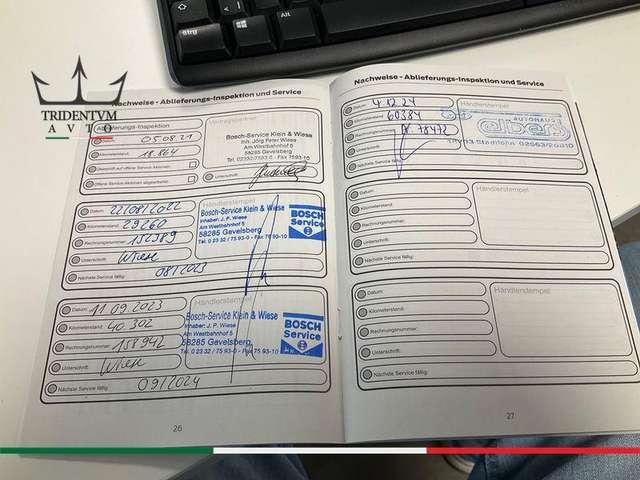 Strg
Alt
TRIDENTVM
AVTO
Nachweise - Ablieferungs-Inspektion und Service
Ablieferungs-Inspektion
05.08.21
Kilometerstand:
Vertragspartner
Bosch-Service Klein & Wiese
Inh. Jörg Peter Wiese
Am Westbahnhof 5
58285 Gevelsberg
Unterschrift
Datum: 22/08/2022
Kilometerstand: 29260
Rechnungsnummer: 152989
Unterschrift: Wiese
Nächste Service fällig: 08/2023
Händlerstempel
Bosch-Service Klein & Wiese
Inhaber: J. P. Wiese
Am Westbahnhof 5
58285 Gevelsberg
Tel. 0 23 32 / 75 93-0 - Fax 75 93-10
BOSCH
Service
Datum: 11 09.2023
Kilometerstand: 40 302
Rechnungsnummer: 158942
Unterschrift: Wiese
Nächste Service fällig: 09/2024
Händlerstempel
Bosch-Service Klein & Wiese
Inhaber: J. P. Wiese
Am Westbahnhof 5
58285 Gevelsberg
Tel. 0 23 32 / 75 93-0 - Fax 75 93-10
BOSCH
Service
26
Nachweise - Ablieferungs-Inspektion und Service
Datum: 4.12.24
Kilometerstand: 60386
Rechnungsnummer:
Unterschrift:
Nächste Service fällig:
Händlerstempel
AUTOHAUS
Datum:
Kilometerstand:
Rechnungsnummer:
Unterschrift:
Nächste Service fällig:
Händlerstempel
Datum:
Kilometerstand:
Rechnungsnummer:
Unterschrift:
Nächste Service fällig:
Händlerstempel
27